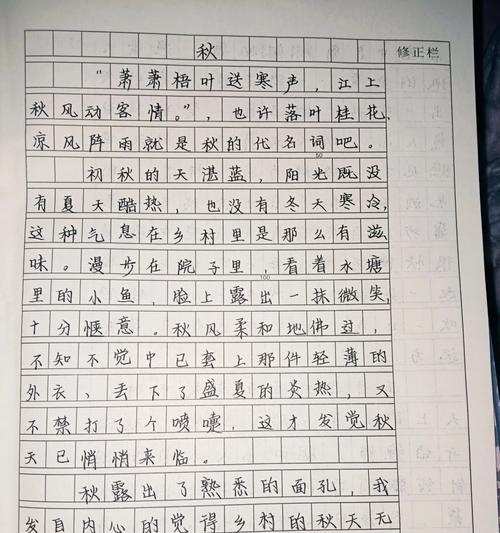 秋
修正栏
“萧萧梧叶送寒声，江上
秋风动客情。”，也许落叶桂花，
凉风阵雨就是秋的代名词吧。
50
初秋的天湛蓝，阳光既没
有夏天酷热，也没有冬天寒冷，
这种气息在乡村里是那么有滋
味。漫步在院子里，看着水塘
100
里的小鱼，脸上露出一抹微笑，
十分惬意。秋风柔和地佛过，
不知不觉中已套上那件轻薄的
外衣、丢下了盛夏的炎热，又
不禁打了个喷嚏，这才发觉秋
天已悄悄来临。
秋露出了熟悉的面孔，我
发自内心的觉得乡村的秋天无